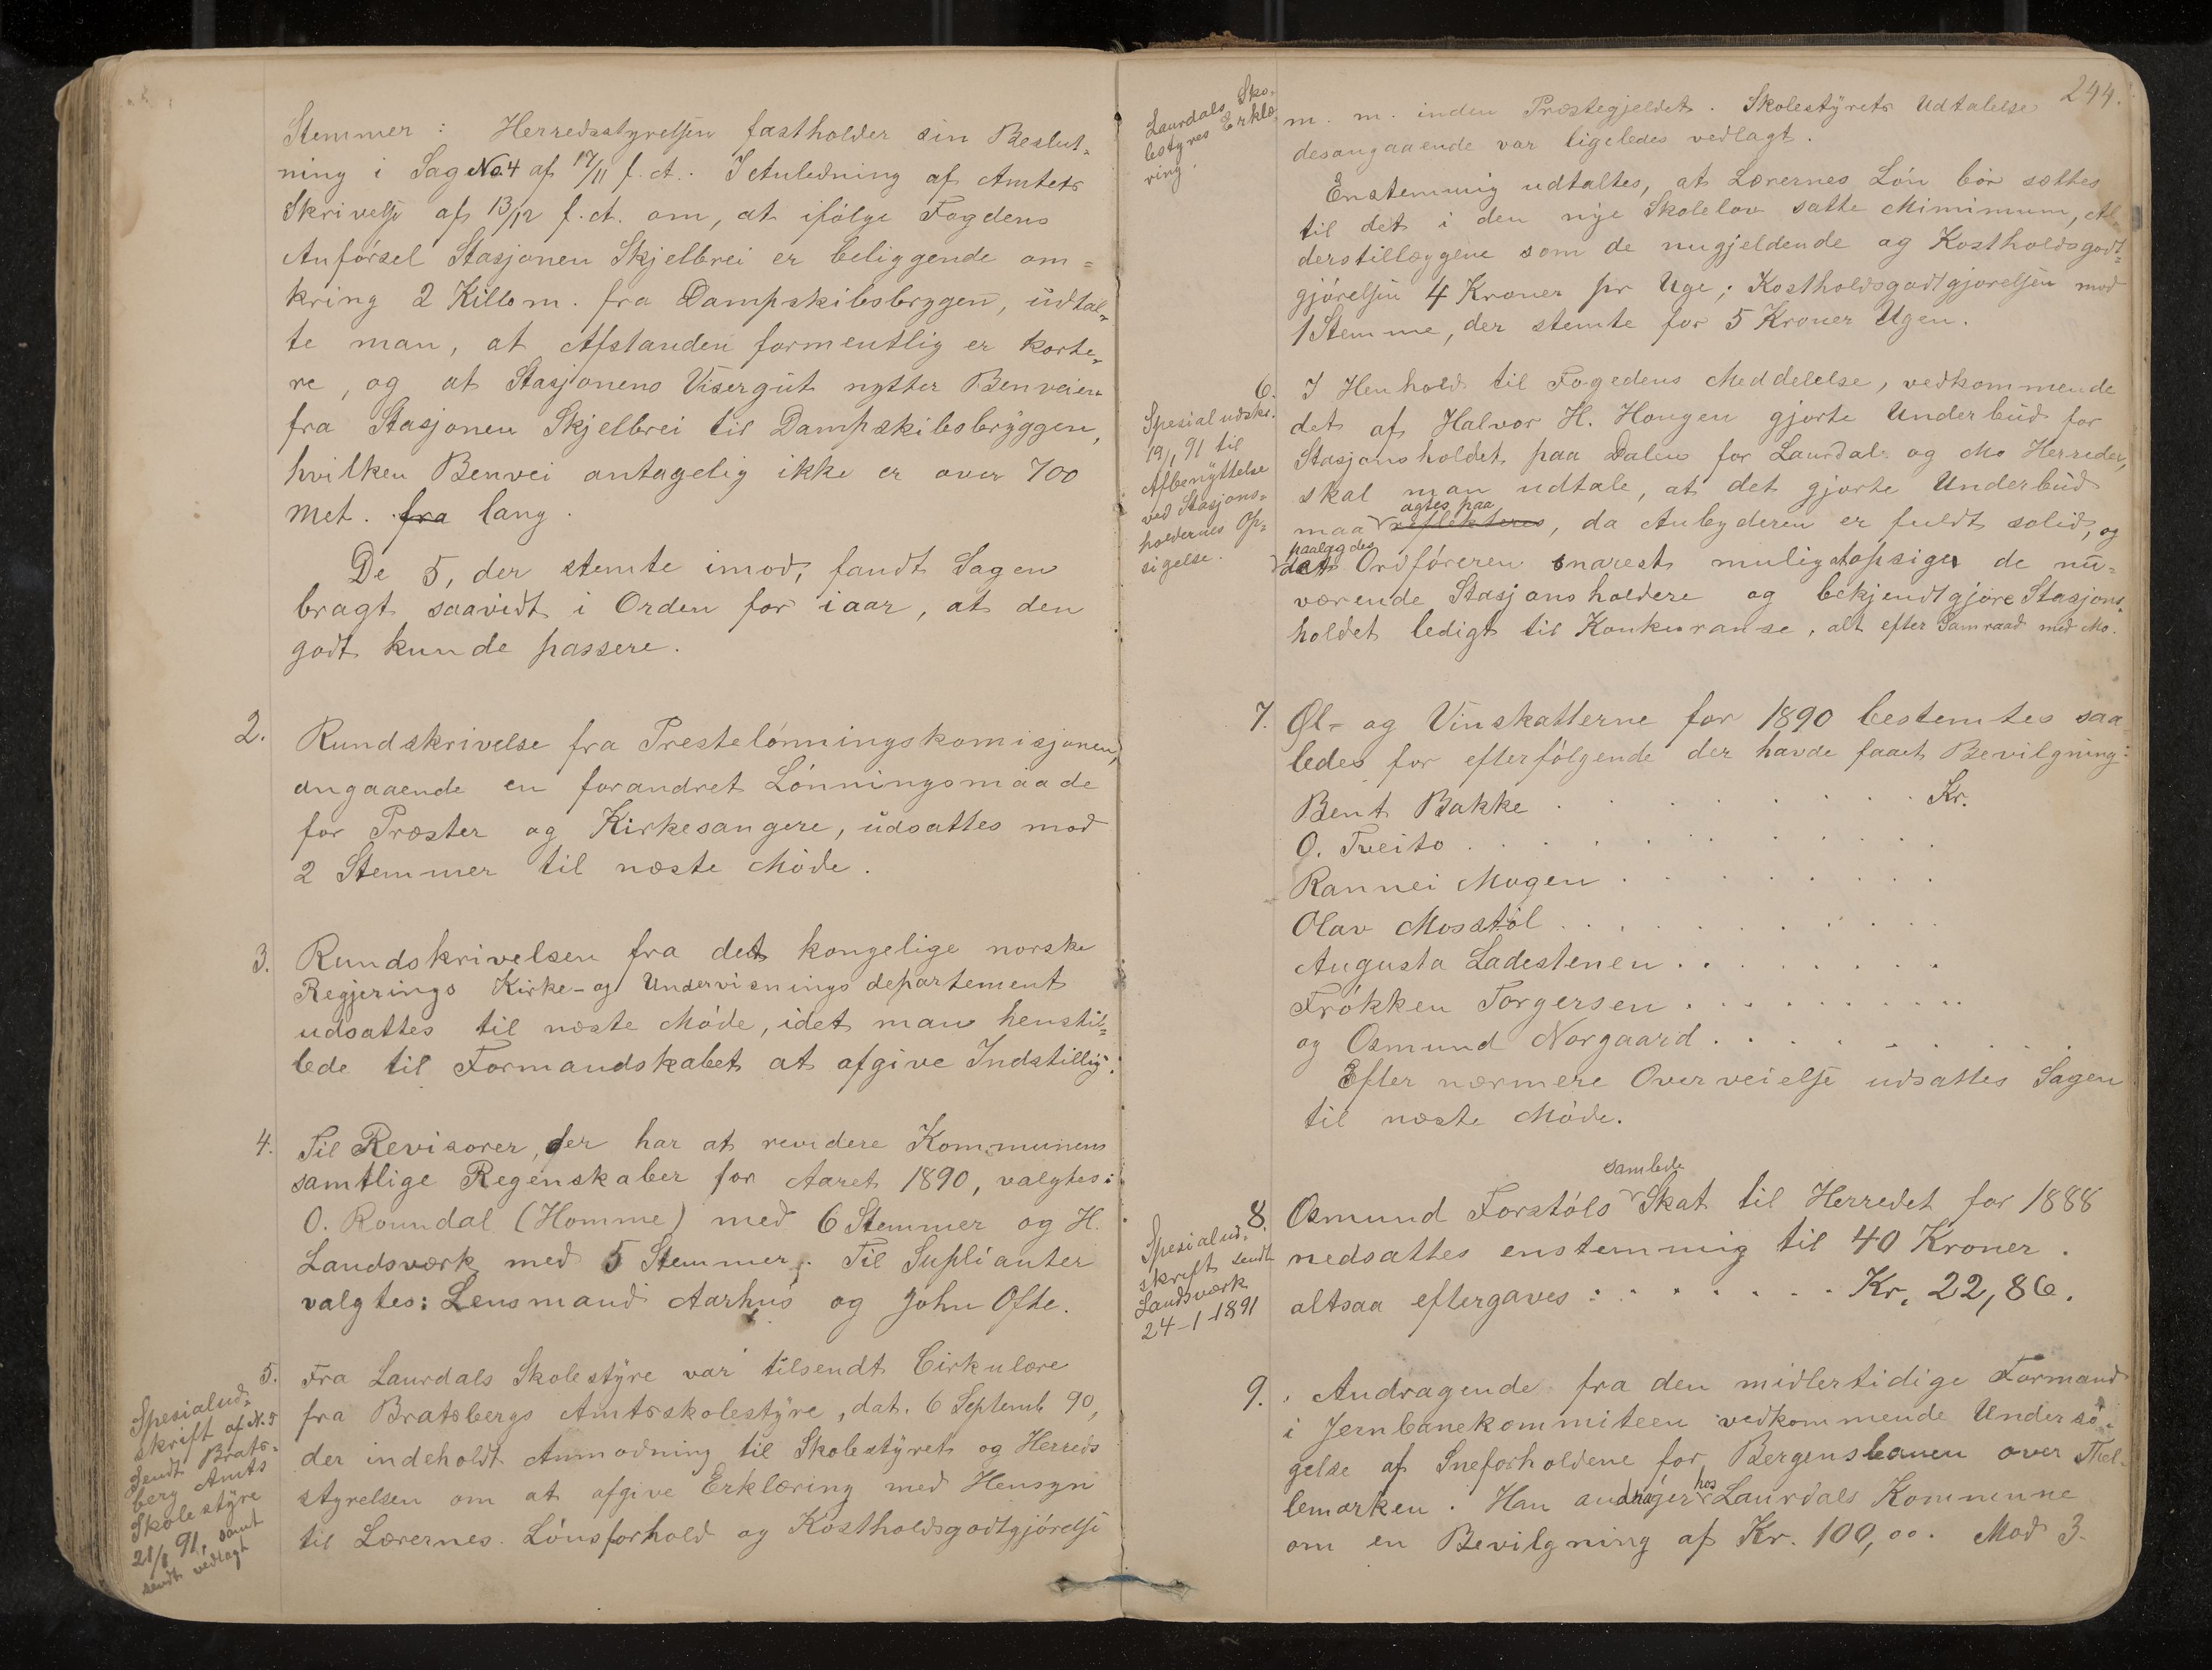 Stemmer: Herredsstyrelsen fastholder sin Beslut-
ning i Sag No. 4 af 17/11 f. A.. I Anledning af Amtets
Skrivelse af 13/12 f. A. om, at ifölge Fogdens
Anförsel Stasjonen Skjelbrei er beliggende om=
kring 2 Killom. fra Dampskibsbryggen, udtal-
te man, at Afstanden formentlig er korte-
re, og at Stasjonens Visergut nytter Benveien
fra Stasjonen Skjelbrei til Dampskibsbryggen,
hvilken Benvei antagelig ikke er over 700
Met. fra lang.
De 5, der stemte imod, fandt Sagen
bragt saavidt i Orden for iaar, at den
godt kunde passere.
2. Rundskrivelse fra Prestelönningskomisjonen,
angaaende en forandret Lönningsmaade
for Præster og Kirkesangere, udsattes mod
2 Stemmer til næste Möde.
3. Rundskrivelsen fra det kongelige norske
Regjerings Kirke- og Undervisningsdepartement
udsattes til næste Möde, idet man henstil=
lede til Formandskabet at afgive Indstillig.
4. Til Revisorer, der har at revidere Kommunens
samtlige Regenskaber for Aaret 1890, valgtes:
O. Roundal (Homme) med 6 Stemmer og H.
Landsværk med 5 Stemmer. Til Suplianter
valgtes: Lensmand Aarhus og John Ofte.
5. Fra Laurdals Skolestyre var tilsendt Cirkulære
fra Bratsbergs Amtsskolestyre, dat. 6 Septemb. 90,
der indeholdt Anmodning til Skolestyret og Herreds
styrelsen om at afgive Erklæring med Hensyn
til Lærernes Lönsforhold og Kostholdsgodtgjörelse
Spesialud-
skrift af N. 5
sendt Brats-
berg Amts
Skolestyre
21/1 91, samt
sendt vedlagt
Laurdals Sko-
lestyres Erklæ-
ring.
244.
m. m. inden Præstegjeldet. Skolestyrets Udtalelse
desangaaende var ligeledes vedlagt.
Enstemmig udtaltes, at Lærernes Lön bör sættes
til det i den nye Skolelov satte Mimimum, Al-
derstillæggene som de nugjeldende og Kostholdsgodt=
gjörelsen 4 Kroner pr Uge; Kostholdsgodtgjörelsen mod
1 Stemme, der stemte for 5 Kroner Ugen.
6. I Henhold til Fogedens Meddelelse, vedkommende
det af Halvor H. Hougen gjorte Underbud for
Stasjonsholdet paa Dalen for Laurdal og Mo Herreder,
skal man udtale, at det gjorte Underbud
agtes paa
maa reflekteres, da Anbyderen er fuldt solid, og
paalagdes
det Ordföreren snarest muligst opsige de nu=
værende Stasjonsholdere og bekjendtgjöre Stasjons-
holdet ledigt til Konkuranse, alt efter Samraad med Mo.
Spesialudskr.
19/1 91 til
Afbenyttelse
ved Stasjons-
holdernes Op-
sigelse.
7. Øl- og Vinskatterne for 1890 bestemtes saa
ledes for efterfölgende der havde faaet Bevilgning:
Bent Bakke . . . . . . . . . Kr.
O. Tveito . . . . . . . . . .
Rannei Mogen . . . . . . . .
Olav Mosstöl . . . . . . . . .
Augusta Ladestenen . . . . . . .
Frökken Torgersen . . . . . . . .
og Osmund Norgaard . . . . . . . .
Efter nærmere Overveielse udsattes Sagen
til næste Möde.
samlede
8. Osmund Forstöls Skat til Herredet for 1888
nedsattes enstemmig til 40 Kroner.
altsaa eftergaves : . . . . . . Kr. 22,86.
Spesialud-
skrift sendt
Landsværk
24-1-1891
9. Andragende fra den midlertidige Formand
i Jernbanekommiteen vedkommende Undersö-
gelse af Sneforholdene for Bergensbanen over Thel-
lemarken. Han andrager hos Laurdals Kommune
om en Bevilgning af Kr. 100,00. Mod 3